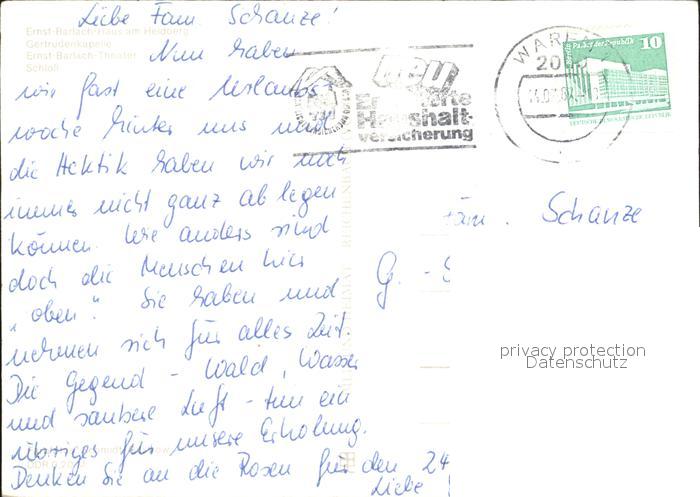 Liebe Fam. Schanze!
Ernst-Barlach-Haus am Heidberg
Gertrudenkapelle
Ernst-Barlach-Theater
Schloß
Nun haben
wir fast eine Urlaubs-
woche hinter uns und
die Hektik haben wir noch
immer nicht ganz ablegen
können. Wie anders sind
doch die Menschen hier
"oben". Sie haben und
nehmen sich für alles Zeit.
Die Gegend - Wald, Wasser
und saubere Luft - tun ein
übriges für unsere Erholung.
Denken Sie an die Rosen für den 24
Liebe
neu
Erweiterte
Haushalt-
versicherung
WAREN
20
Berlin Palast der Republik 10
DEUTSCHE DEMOKRATISCHE REPUBLIK
Fam. Schanze
G. -
privacy protection
Datenschutz